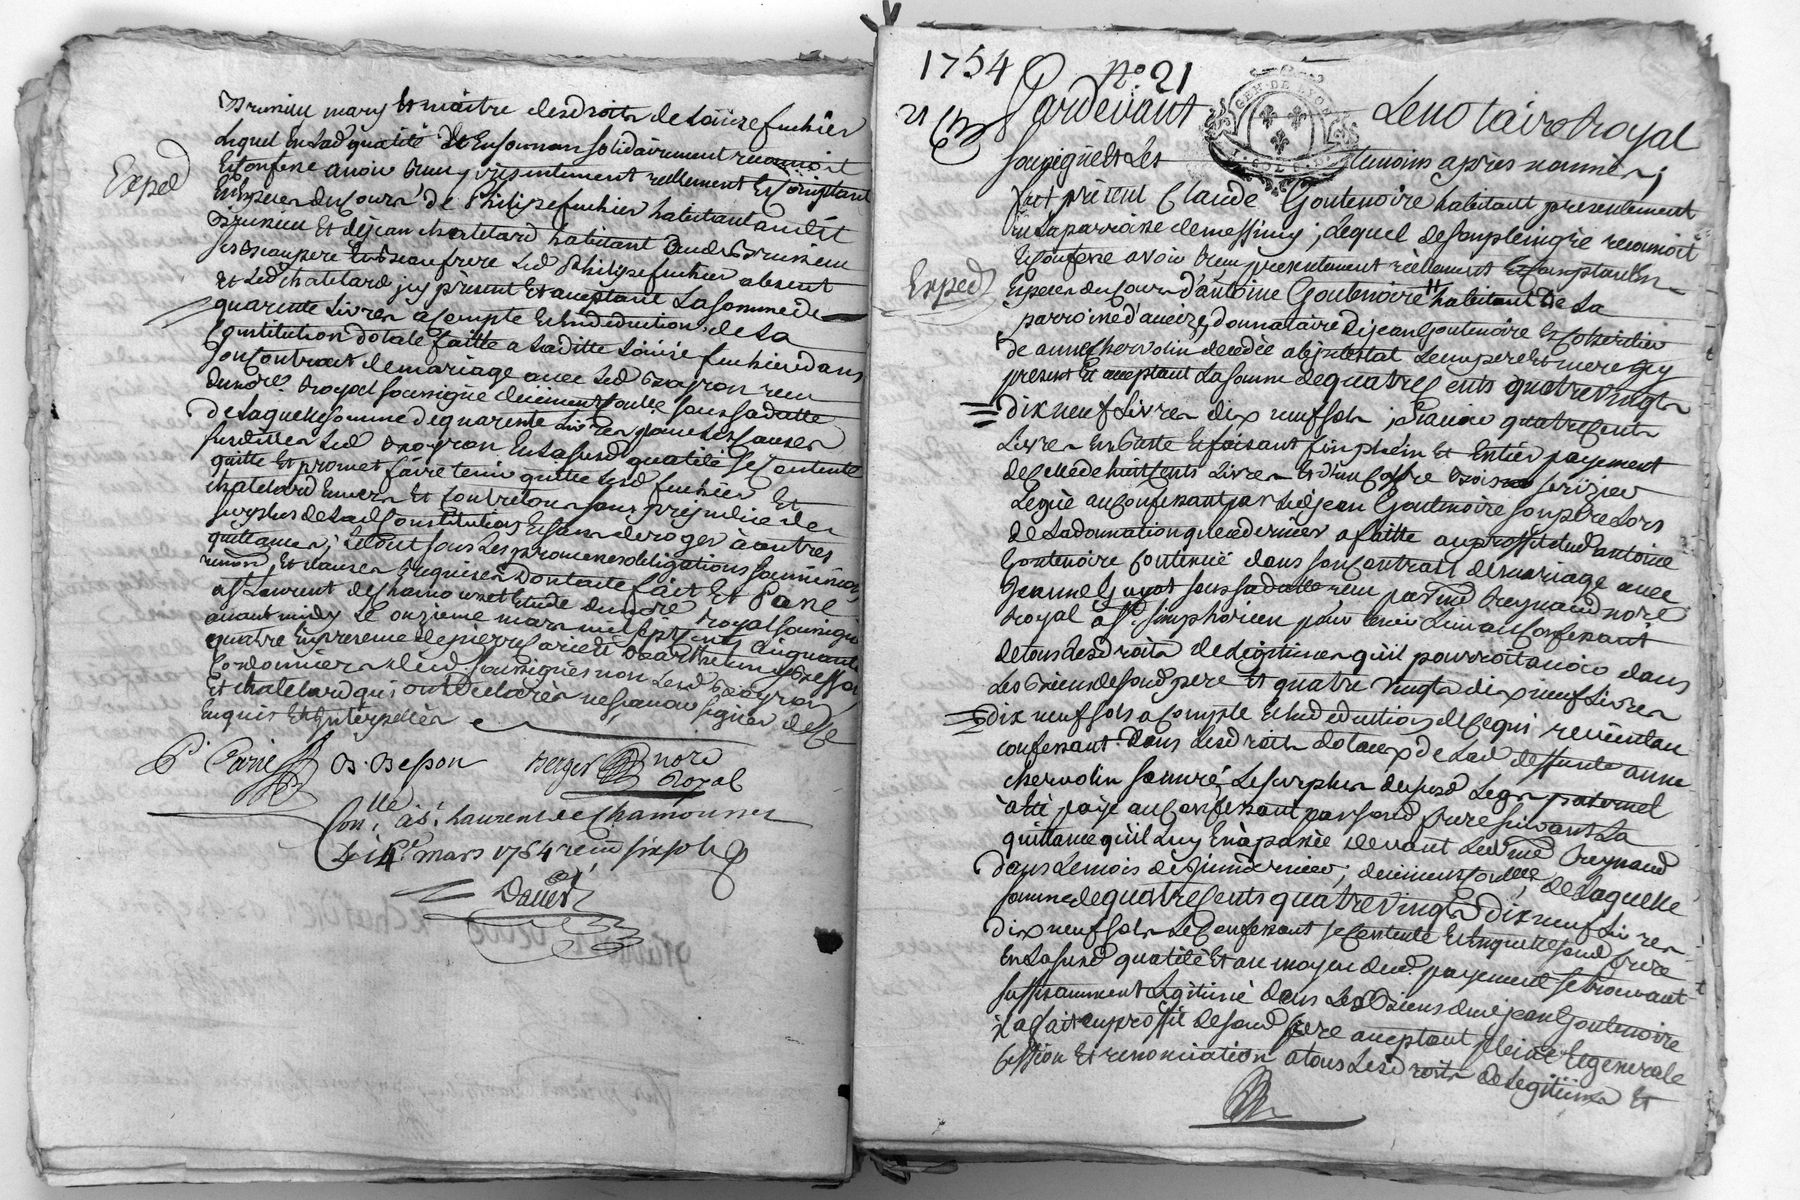 Brunieu mary et maitre desdroits de Loüize fuchier
Lequel En Lad qualité et En son nom solidairement reconnoit
Exped
Et Confesse avoir Reçu presentement reellement Et Comptant
En Especes du Cours de Philipe fuchier habitant audit
Brunieu Et dejean chatelard habitant dud Brunieu
ses Beaupere Et Beaufrere Led Philipe fuchier absent
et Led chatelard icy présent Et acceptant La somme de
quarente Livres a Compte Et En deduction de La
Constitution dotale faitte a Laditte Loüise fuchier dans
son Contrat de mariage avec Led Bayron reçu
du no.re Royal soussigné düement Con.llé sous sa datte
De Laquelle somme de quarente Livres pour Les Causes
susdittes Led Bayron En sa susd qualité se Contente
quitte Et promet faire tenir quitte Led fuchier Et
chatelard Envers Et Contre tous sans prejudice des
surplus de Lad Constitution Et sans deroger à autres
quittances; Le tout sous Les promesses obligations soumissions
renon.ons Et clauses Requises Dont acte fait Et Passé
a S.t Laurent de chamousset Etude du no.re Royal soussigné
avant midy Le onzieme mars mil sept Cent Cinquante
quatre En presence de pierre Parie Et Barthelemy Besson
Cordonniers dud. soussignés non Led Bayron
Et chatelard qui ont declarés ne sçavoir signer de Ce
Enquis Et Interpellés
P. Parie B. Besson Berger no.re
Royal
Con.llé à S.t Laurent de Chamousset
Le 14 mars 1754 reçu six sols
1754 n.o 21
21 Pardevant Le no taire Royal
GEN. DE LYON
soussigné Et Les temoins apres nommés;
fut présent Claude Goutenoire habitant presentement
En La parroisse de messimy; Lequel de son plein gré reconnoit
Et Confesse avoir Reçu presentement réellement Et Comptant En
Exped
Especes du Cours d'antoine Goutenoire habitant De La
parroisse d'aveize donnataire De jean Goutenoire Et Coheritier
de anne chervolin decedée abintestat Leurs pere Et mere icy
present Et acceptant La somme de quatre Cents quatre Vingts
dix neuf Livres dix neuf sols; Sçavoir quatre Cents
Livres En Reste Et faisant fin plein Et Entier payement
de Celle de huit Cents Livres Et d'un Coffre Bois Serizier
Leguée au Confessant par Led jean Goutenoire son pere Lors
de La donnation que Ce dernier a faitte au proffit dud antoine
Goutenoire Contenue dans son Contrat de mariage avec
Jeanne Guyot sous sa datte reçu par m.e Reynaud no.re
Royal a S.t Simphorien pour tenir Lieu au Confessant
de tous Lesd droits de Legitimes qu'il pourroit avoir dans
Les Biens de son d pere Et quatre Vingts dix neuf Livres
Dix neuf sols a Compte Et En deduction de Ce qui revient au
confessant dans Lesd droits dotaux de Lad deffunte anne
chervolin sa mere, Le surplus du susd Legs paternel
a été payé au Confessant par sond frere suivant La
quittance qu'il Luy En a passée devant Led m.e Reynaud
dans Le mois de ... dernier; düement Con.llée; de Laquelle
somme de quatre Cents quatre Vingts Dix neuf Livres
dix neuf sols Le Confessant se Contente Et En quitte sond frere
En La susd qualité Et au moyen dud. payement se trouvant
suffisamment Legitimé dans Les Biens dud jean Goutenoire
il a fait au proffit de sond frere acceptant pleine Et generale
Cession Et renonciation a tous Lesd droits de Legitime Et